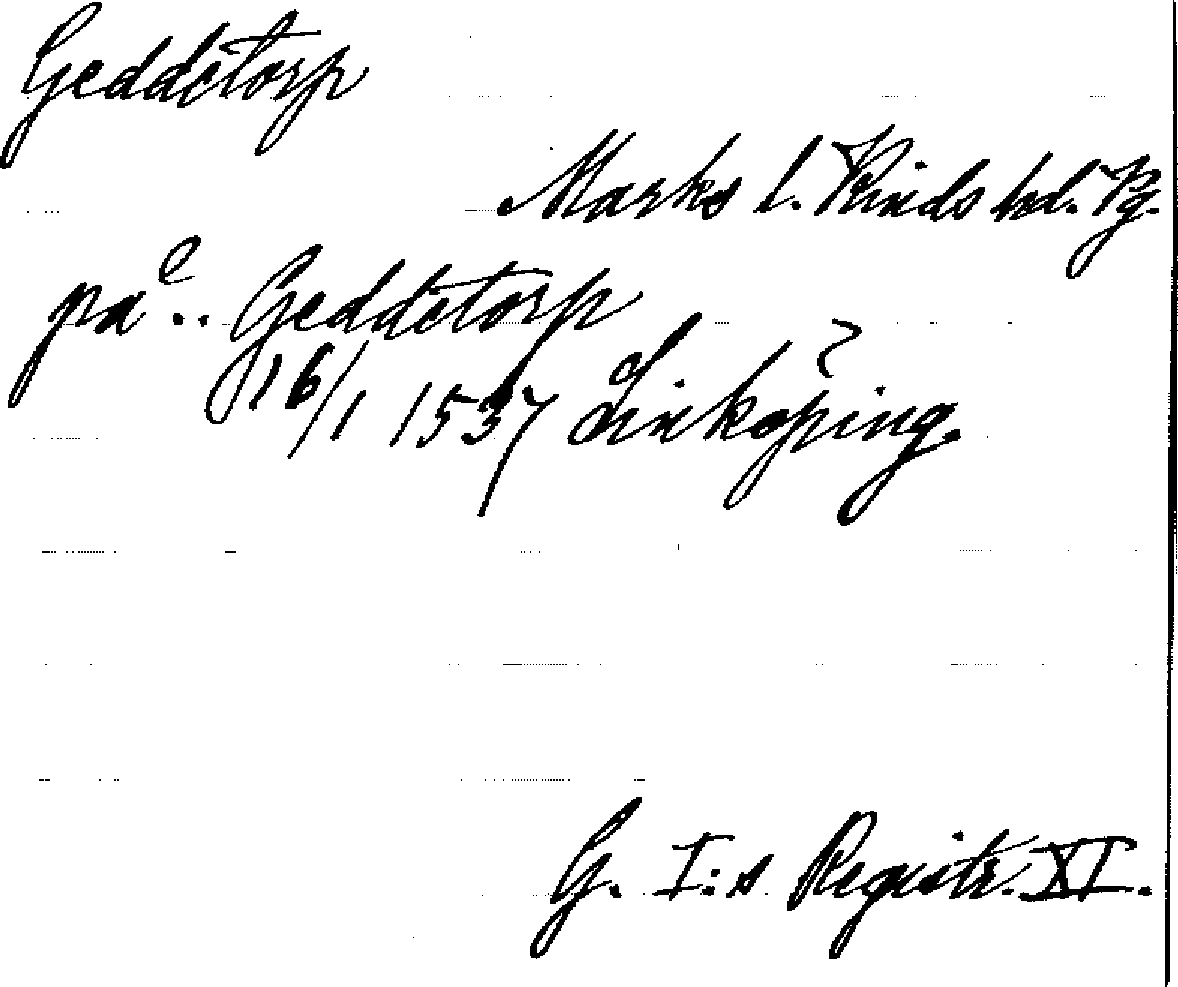 Geddetorp
Marks l. Kinds hd. Vg.
på.. Geddetorp
16/1 1537 Linköping.
G. I:s Registr. XI.